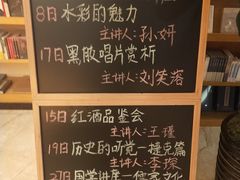 8日水彩的魅力
主讲人:孙妍
17日黑胶唱片赏析
主讲人:刘笑落
15日红酒品鉴会
主讲人:王瑾
19日历史的听觉-捷克篇
主讲人:李琛
27日国学讲座—儒家文化